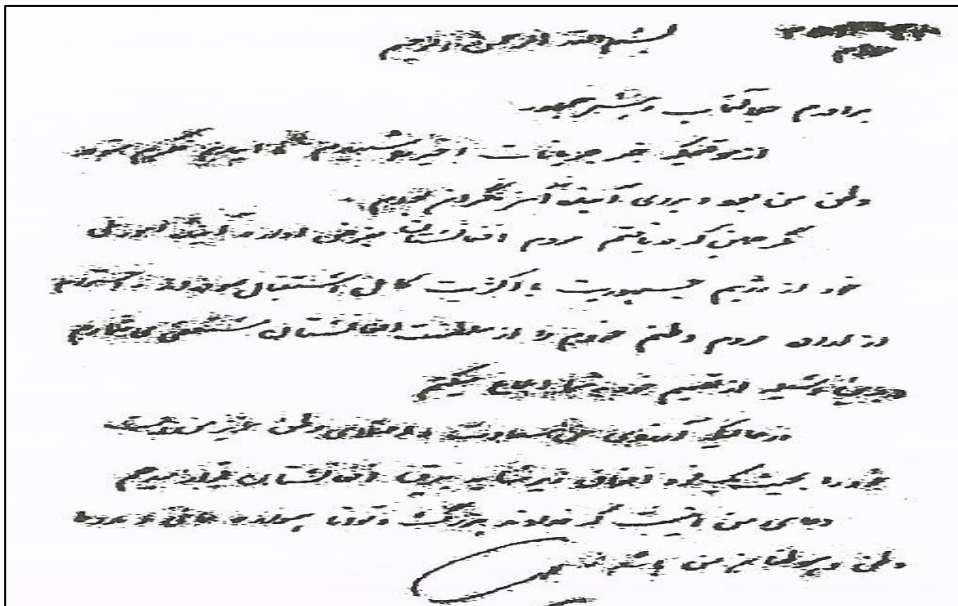 بسم الله الرحمن الرحیم
برادرم جلالتمآب رئیس جمهور
از موقعیکه خبر جریانات اخیر را شنیدم تا ایندم فکرم متوجه
وطن من بود و برای آینده آن نگران بودم.
مگر همین که دریافتم مردم افغانستان بغرض اداره آینده امور ملی
خود از رژیم جمهوریت با اکثریت کامل استقبال نموده اند با احترام
از اراده مردم وطنم خودم را از سلطنت افغانستان مستعفی می شمارم
و بدین وسیله از تصمیم خود به شما ابلاغ میکنم
در حالیکه آرزوی من سعادت و اعتلای وطن عزیز من است
خود را بحیث یک فرد افغان زیر سایه بیرق افغانستان قرار میدهم
دعای من اینست که خداوند بزرگ و توانا همواره حامی و مددگار
وطن و هموطنان من باشد